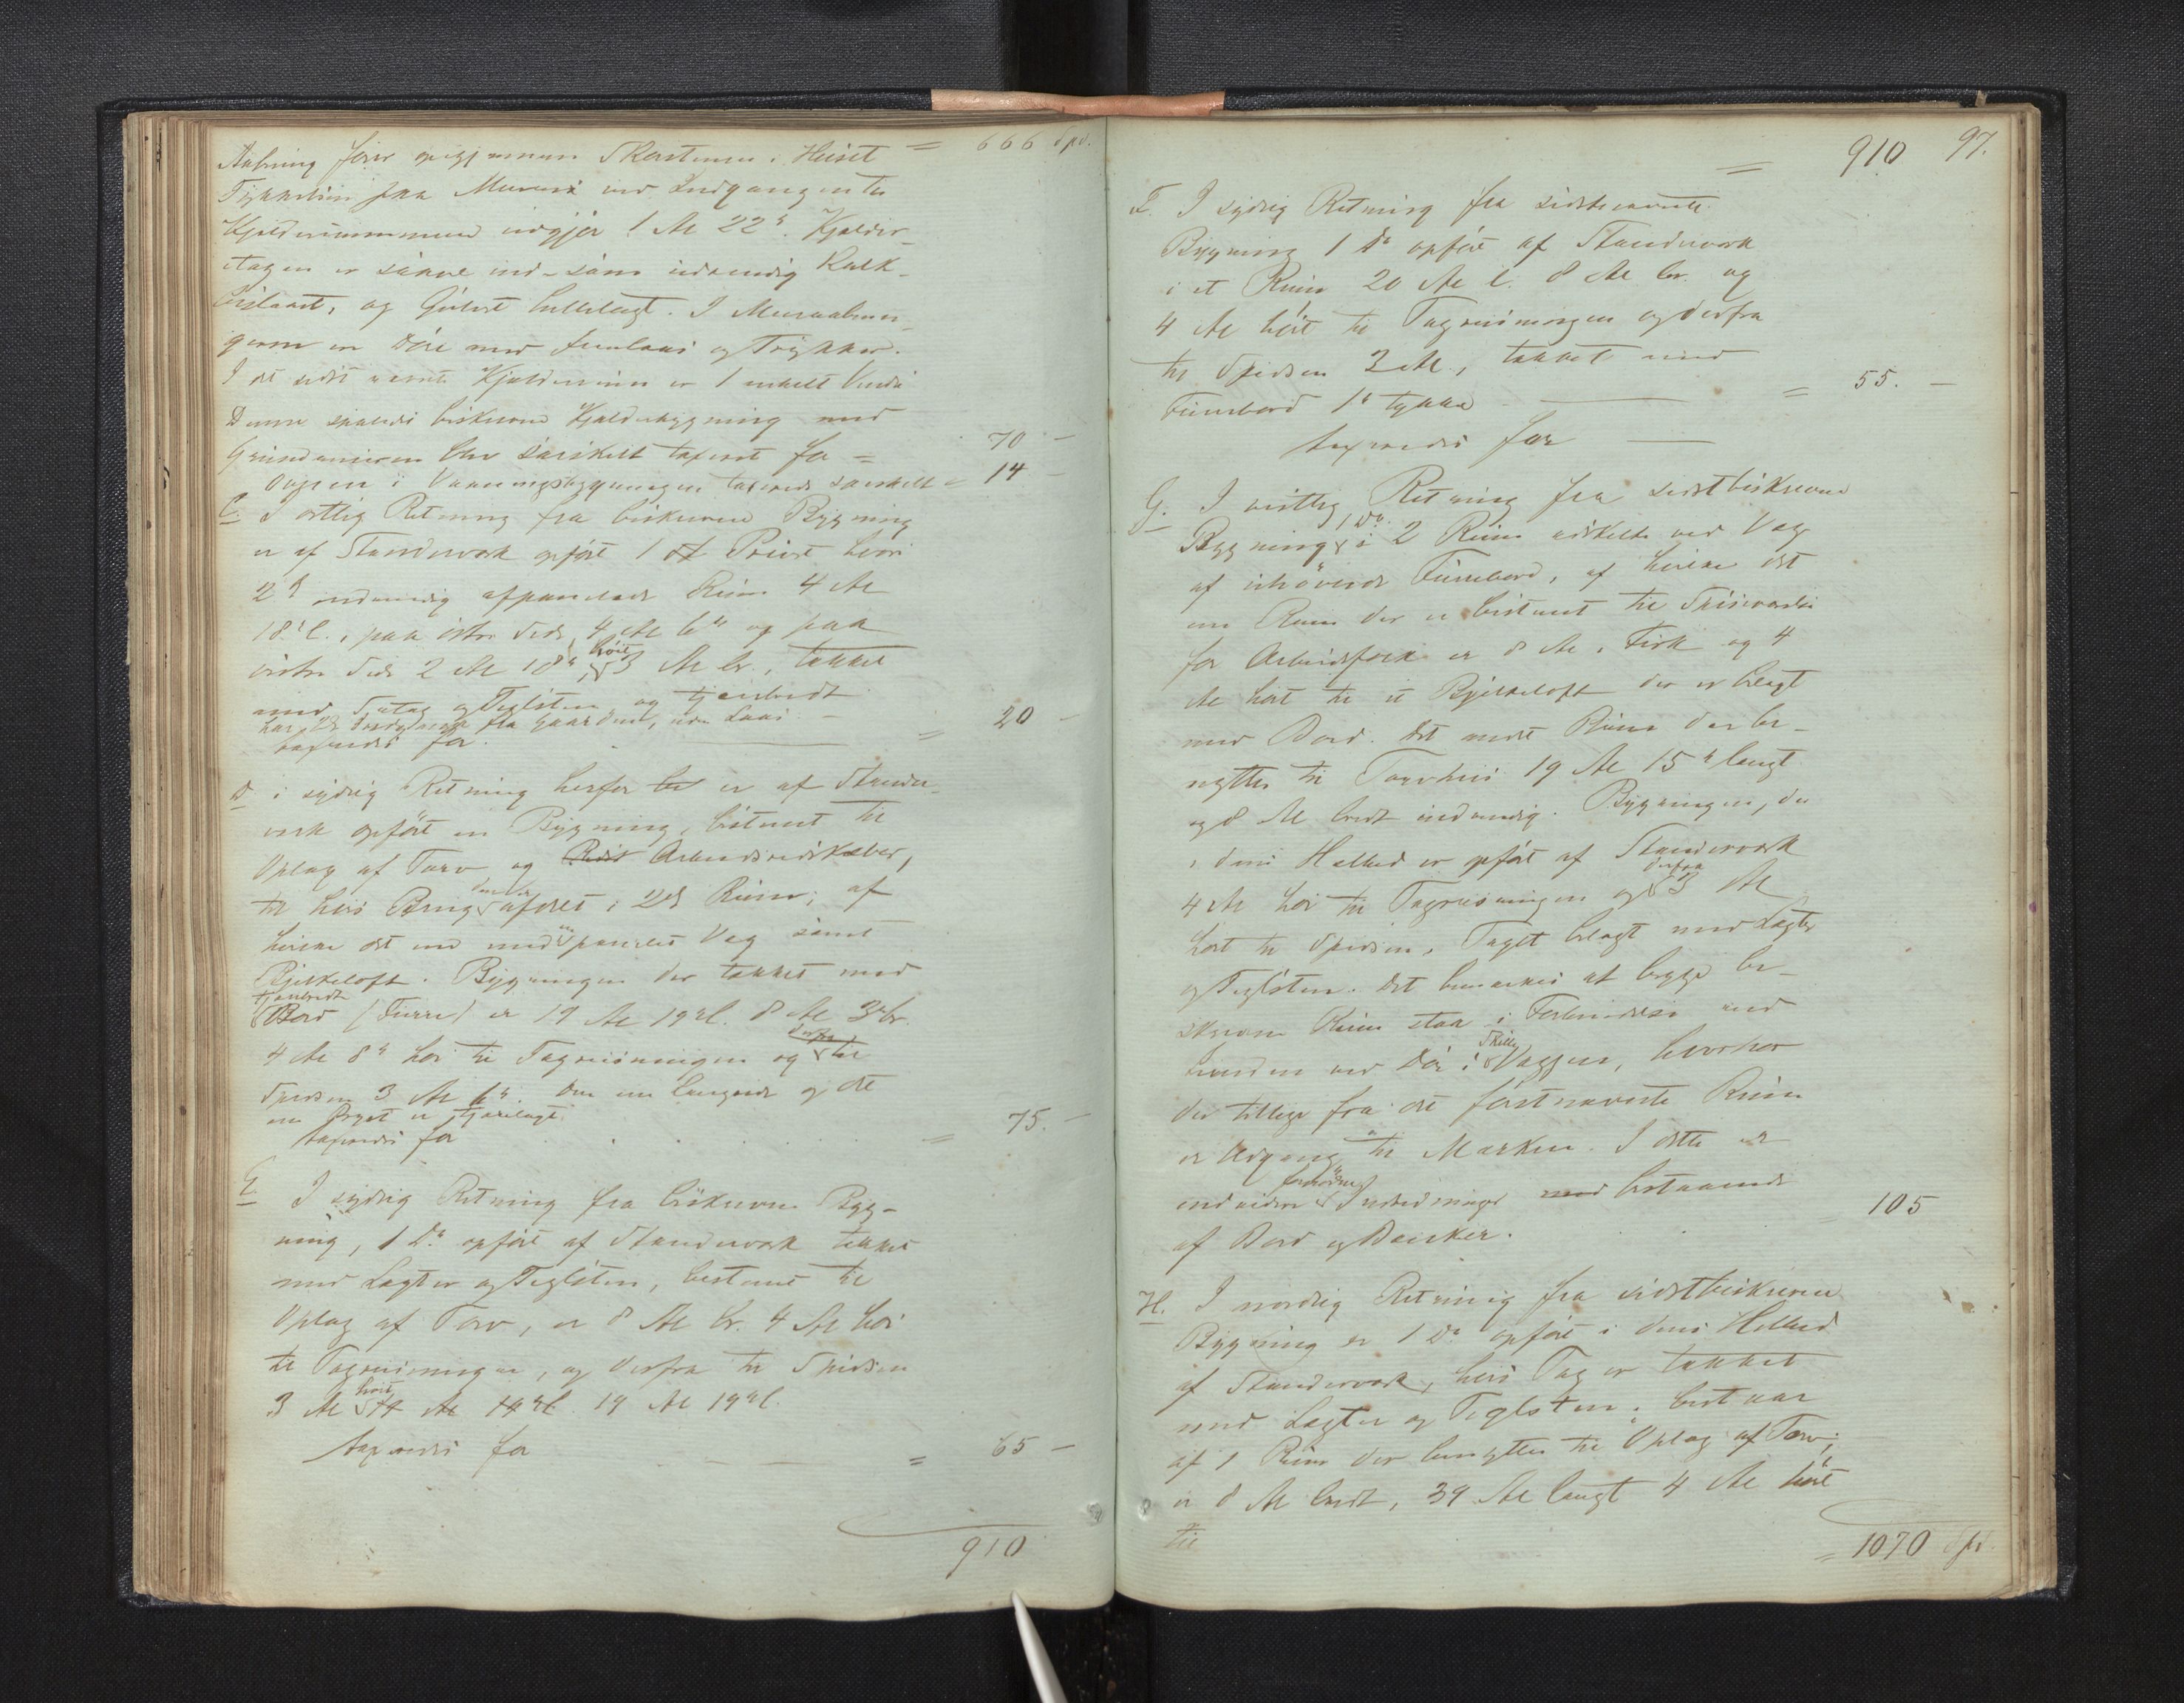 Aabning fører gjennem Skorstenen. Huset = 666 Spd.
Tykkelsen paa Muren ved Indgangen til
Kjelderrummene udgjør 1 Al 22". Kjelder-
etagen er saavel ind- som udvendig Kalk-
og Gulvet hellelagt. I Muraabnin-
gerne er Døre med og Trykker.
I det sidst nævnte Kjelderrum er 1 enkelt Vindu
Denne saaledes beskrevne Kjelderbygning med
Grundmuren blev særskilt taxeret for = 70 —
Ovnen i Vaaningsbygningen taxeredes særskilt = 14 —
C. I østlig Retning fra beskrevne Bygning
er af Standerværk opført 1 hvori
2 indvendig afpanelede Rum 4 Al
18" l., paa østre Side 4 Al 6" og paa
vestre Side 2 Al 18" høit, 3 Al br., tækket
med Sutag og Teglsten og tjærebredt
har fra Gaarden, uden Laas
taxeredes for = 20 —
D i sydlig Retning herfra er af Stander-
værk opført en Bygning, bestemt til
Oplag af Torv og Arbeidsredskaber,
til hvis Brug den er afdelt i 2de Rum, af
hvilke det ene med panelet Væg samt
Bjelkeloft. Bygningen der tækket med
tjærebredte Bord (Furre) er 19 Al 19" l. 8 Al 3" br.
4 Al 8" høi til Tagreisningen og derfra til
Spidsen 3 Al 6". Den ene Langside og det
ene er tjærelagt
taxeredes for = 75. —
E I sydlig Retning fra beskrevne Byg-
ning, 1 Do opført af Standerværk tækket
med Lægter og Teglsten, bestemt til
Oplag af Torv, er 8 Al br. 4 Al høi
til Tagreisningen, og derfra til Spidsen
3 Al høit 14 Al 14" l. 19 Al 19" l.
taxeredes for = 65 —
910
= 910 97.
F. I sydlig Retning fra sidstnævnte
Bygning 1 Do opført af Standerværk
i et Rum 20 Al l. 8 Al br. og
4 Al høit til Tagreisningen og derfra
til Spidsen 3 Al, tækket med
Furrebord 1" tykke = 55. —
taxeredes for
G. I vestlig Retning fra sidstbeskrevne
Bygning 1 Do i 2 Rum adskilte ved Væg
af uhøvlede Furrebord, af hvilke det
ene Rum der er bestemt til Spiseværelse
for Arbeidsfolk er 8 Al i Firk og 4
Al høit til et Bjelkeloft der er belagt
med Bord. Det andet Rum der be-
nyttes til Torvhuus 19 Al 15" langt
og 8 Al bredt indvendig. Bygningen, der
i dens Helhed er opført af Standerværk
4 Al høi til Tagreisningen og derfra 3 Al
høit til Spidsen. Taget belagt med Lægter
og Teglsten. Det bemærkes at begge be-
skrevne Rum staa i Forbindelse med
hinanden ved Dør i Skille Væggen, hvorhos
der tillige fra det førstnævnte Rum
er Udgang til Marken. I dette er
endvidere fornødne Indredninger med bestaaende
af Bord og Bænker. 105
H. I nordlig Retning fra sidstbeskrevne
Bygning er 1 Do opført i dens Helhed
af Standerværk, hvis Tag er tækket
med Lægter og Teglsten. bestaar
af 1 Rum der benyttes til Oplag af Torv;
er 8 Al bredt, 39 Al langt 4 Al høit
til
= 1070 Spd.